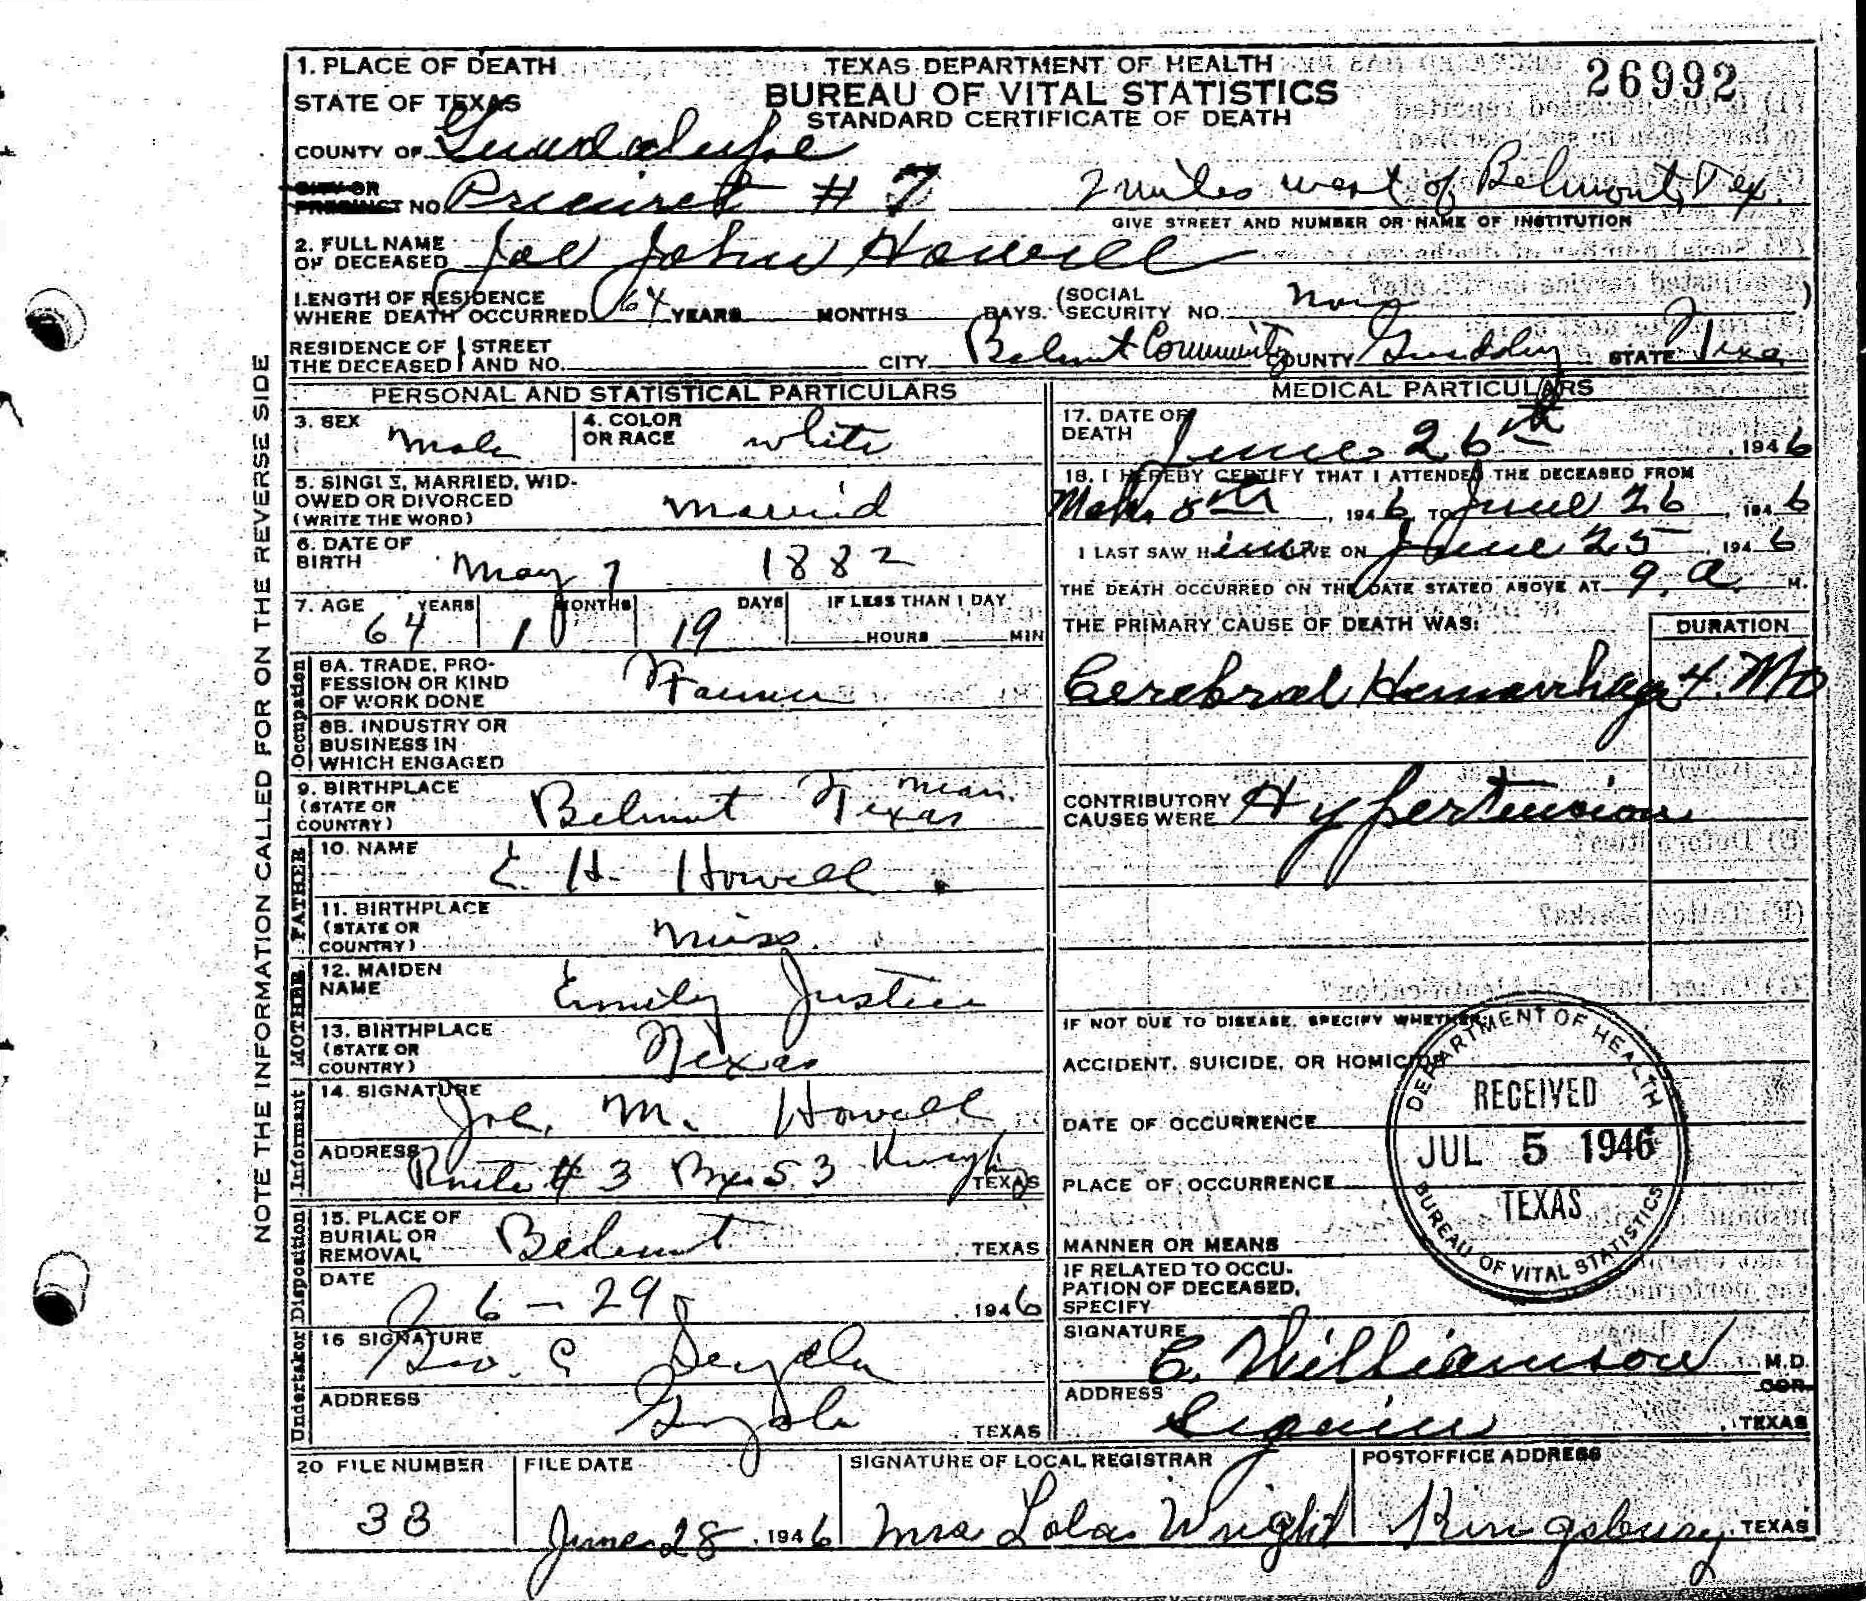 1. PLACE OF DEATH
STATE OF TEXAS
TEXAS DEPARTMENT OF HEALTH
BUREAU OF VITAL STATISTICS
STANDARD CERTIFICATE OF DEATH
26992
COUNTY OF Guadalupe
CITY OR
PRECINCT NO. Precinct # 7 2 miles west of Belmont, Tex.
GIVE STREET AND NUMBER OR NAME OF INSTITUTION
2. FULL NAME
OF DECEASED Joe John Howell
LENGTH OF RESIDENCE
WHERE DEATH OCCURRED 64 YEARS MONTHS DAYS. (SOCIAL
SECURITY NO. )
RESIDENCE OF THE DECEASED STREET AND NO. CITY Belmont Community COUNTY STATE Texas
NOTE THE INFORMATION CALLED FOR ON THE REVERSE SIDE
PERSONAL AND STATISTICAL PARTICULARS
3. SEX Male
4. COLOR OR RACE white
5. SINGLE, MARRIED, WID-
OWED OR DIVORCED
(WRITE THE WORD) Married
6. DATE OF
BIRTH May 7 1882
7. AGE YEARS MONTHS DAYS IF LESS THAN 1 DAY
64 1 19 HOURS MIN
Occupation
8A. TRADE, PRO-
FESSION OR KIND
OF WORK DONE Farmer
8B. INDUSTRY OR
BUSINESS IN
WHICH ENGAGED
9. BIRTHPLACE
(STATE OR
COUNTRY) near Belmont Texas
FATHER
10. NAME E. H. Howell
11. BIRTHPLACE
(STATE OR
COUNTRY) Miss.
MOTHER
12. MAIDEN
NAME Emily Justice
13. BIRTHPLACE
(STATE OR
COUNTRY) Texas
Informant
14. SIGNATURE Joe. M. Howell
ADDRESS Route # 3 Box 53 TEXAS
Disposition
15. PLACE OF
BURIAL OR
REMOVAL Belmont TEXAS
DATE 6-29, 1946
Undertaker
16 SIGNATURE Geo. C
ADDRESS TEXAS
MEDICAL PARTICULARS
17. DATE OF
DEATH June 26th, 1946
18. I HEREBY CERTIFY THAT I ATTENDED THE DECEASED FROM
Mch. 8th, 1946, TO June 26, 1946
I LAST SAW Him ALIVE ON June 25, 1946
THE DEATH OCCURRED ON THE DATE STATED ABOVE AT 9. a M.
THE PRIMARY CAUSE OF DEATH WAS: DURATION
Cerebral Hemorrhage 4. Mo
CONTRIBUTORY
CAUSES WERE Hypertension
IF NOT DUE TO DISEASE, SPECIFY WHETHER:
ACCIDENT, SUICIDE, OR HOMICIDE
DATE OF OCCURRENCE
PLACE OF OCCURRENCE
MANNER OR MEANS
IF RELATED TO OCCU-
PATION OF DECEASED,
SPECIFY
DEPARTMENT OF HEALTH
RECEIVED
JUL 5 1946
TEXAS
BUREAU OF VITAL STATISTICS
SIGNATURE C. Williamson M.D.
COR.
ADDRESS Seguin, TEXAS
20 FILE NUMBER FILE DATE SIGNATURE OF LOCAL REGISTRAR POSTOFFICE ADDRESS
33 June 28, 1946 Mrs Lola Wright Kingsbury, TEXAS